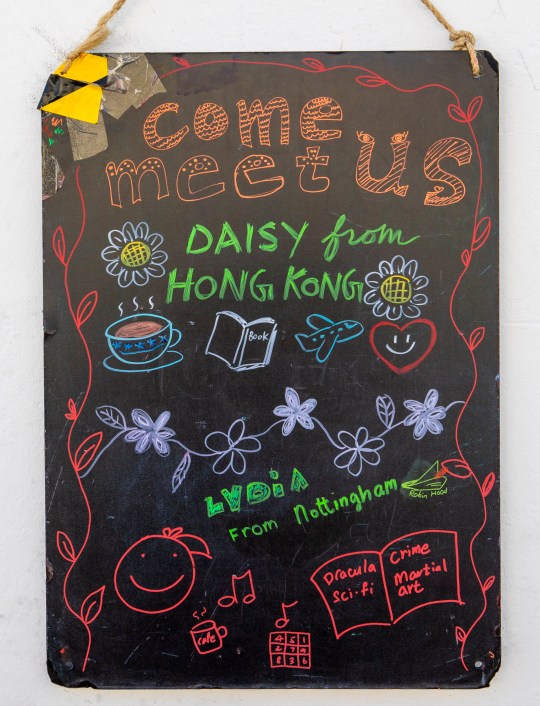 come
meet us
DAISY from
HONG KONG
BOOK
LYDiA
From Nottingham
Robin Hood
Dracula
Sci-fi
Crime
Martial
art
cafe
4 5 1
6 7 9
8 3 6